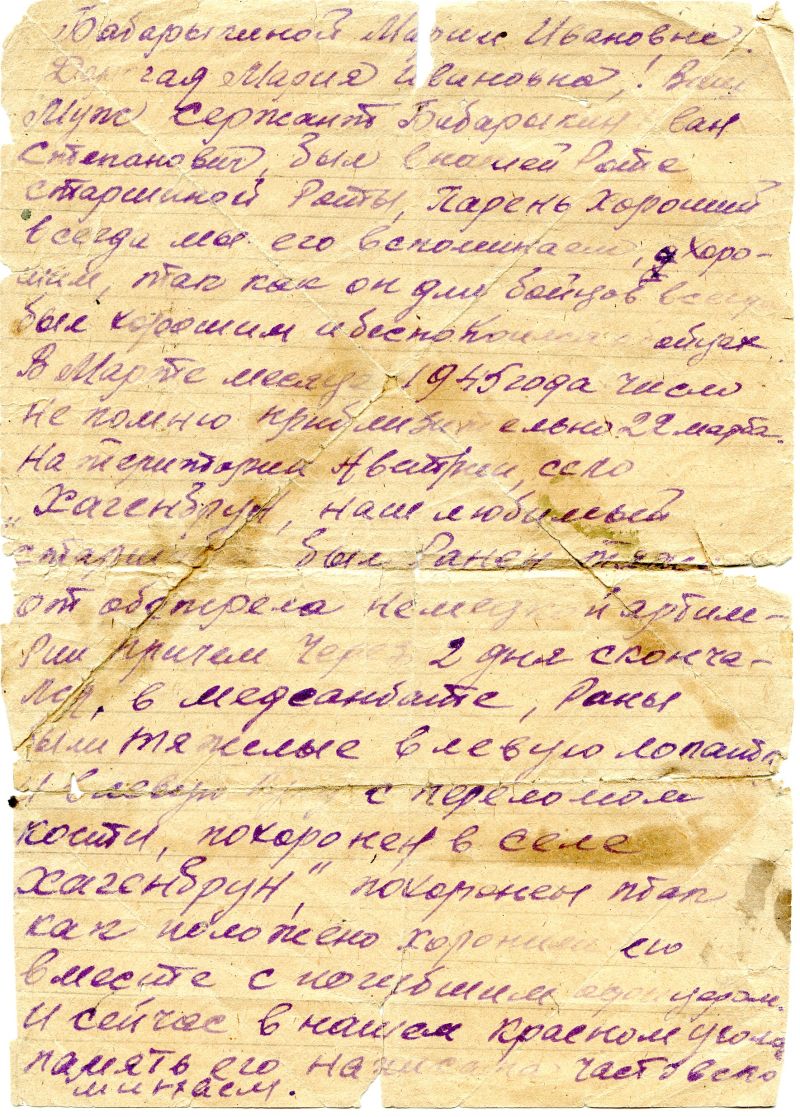 Бабарыкиной Марии Ивановне.
Мария Ивановна! Ваш
Муж Сержант Бабарыкин Иван
Степанович, был в нашей Роте
старшиной Роты, Парень Хороший
всегда мы его вспоминаем, Хоро-
шим, так как он для бойцов всегда
был хорошим и беспокоился о бойцах.
В Марте месяце 1945 года число
не помню приблизительно 22 марта.
На територии Австрии, село
„Хагенбрун, наш любимый
старшина был Ранен
от обстрела немецкой артил-
рии причем Через 2 дня сконча-
лся, в медсанбате, Раны
были тяжелые в левую лопатку
и в левую с переломом
кости, похоронен в селе
Хагенбрун", похоронен так
как положено хоронили его
вместе с погибшим
И сейчас в нашем красном уголке
память его написана часто вспо
минаем.